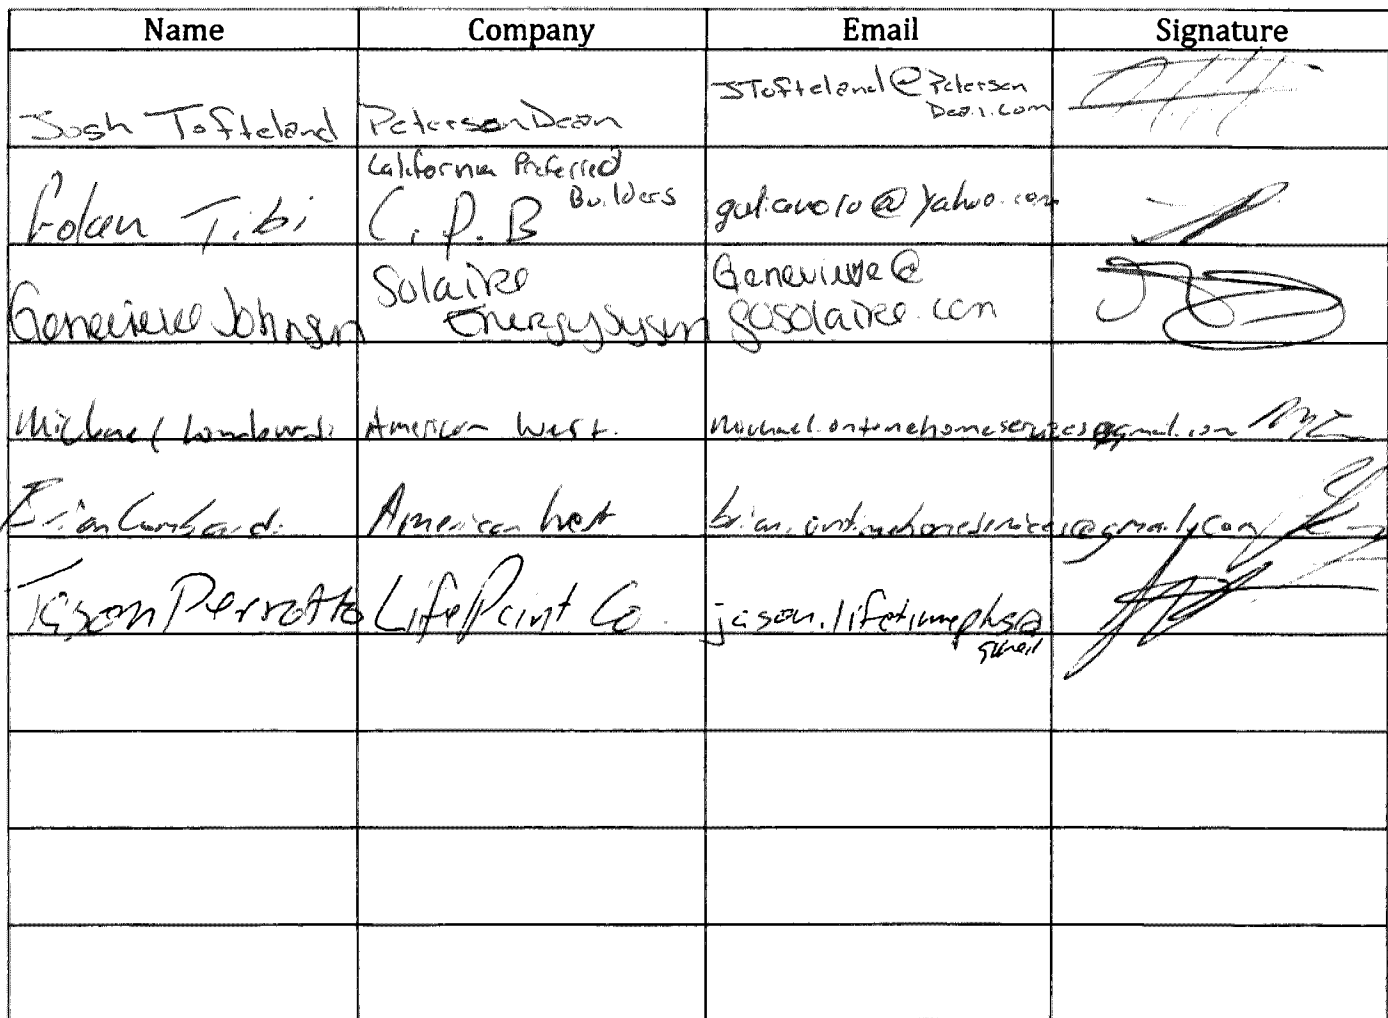 Name Company Email Signature
Josh Tofteland PetersonDean JTofteland@Peterson
Dean.com
California Preferred
Builders
Tibi C.P.B @yahoo.com
Solaire Genevieve@
Genevieve Johnson Energy System gosolaire.com
Michael Lombardi American West. michael.ontimehomeservices@gmail.com
Brian Lombardi American West brian.ontimehomeservices@gmail.com
Jason Perrotta Life Paint Co. jason.lifetimephs@
gmail